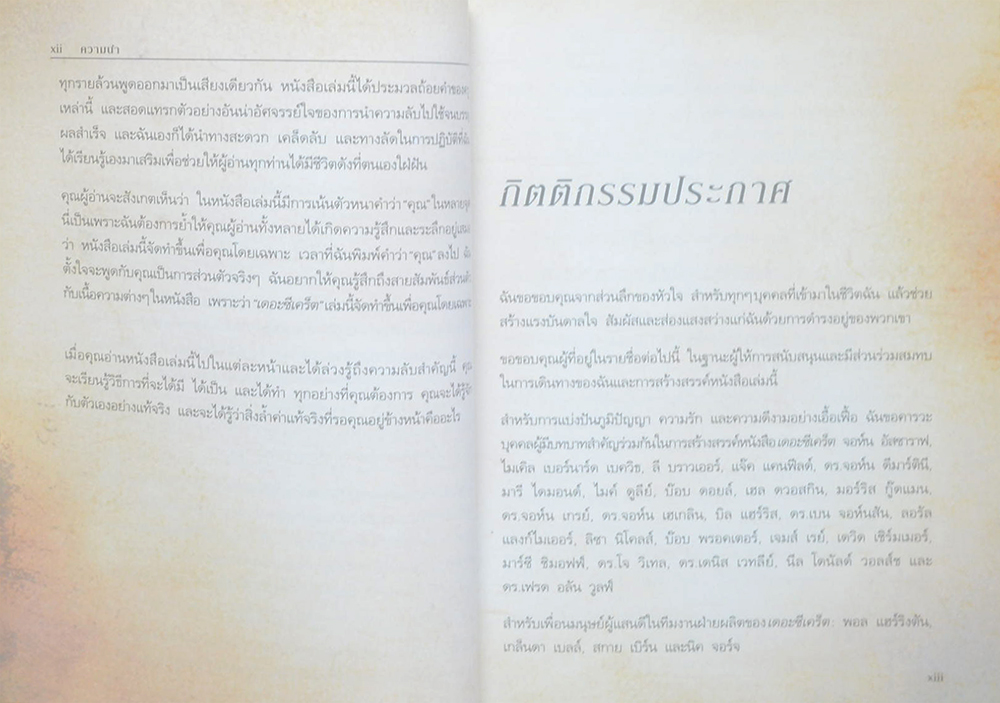 xii ความนำ
ทุกรายล้วนพูดออกมาเป็นเสียงเดียวกัน หนังสือเล่มนี้ได้ประมวลถ้อยคำของ
เหล่านี้ และสอดแทรกตัวอย่างอันน่าอัศจรรย์ใจของการนำความลับไปใช้จนบรร
ผลสำเร็จ และฉันเองก็ได้นำทางสะดวก เคล็ดลับ และทางลัดในการปฏิบัติที่ฉัน
ได้เรียนรู้เองมาเสริมเพื่อช่วยให้ผู้อ่านทุกท่านได้มีชีวิตดังที่ตนเองใฝ่ฝัน
คุณผู้อ่านจะสังเกตเห็นว่า ในหนังสือเล่มนี้มีการเน้นตัวหนาคำว่า "คุณ" ในหลายจุด
นี่เป็นเพราะฉันต้องการย้ำให้คุณผู้อ่านทั้งหลายได้เกิดความรู้สึกและระลึกอยู่เสมอ
ว่า หนังสือเล่มนี้จัดทำขึ้นเพื่อคุณโดยเฉพาะ เวลาที่ฉันพิมพ์คำว่า "คุณ" ลงไป ฉัน
ตั้งใจจะพูดกับคุณเป็นการส่วนตัวจริงๆ ฉันอยากให้คุณรู้สึกถึงสายสัมพันธ์ส่วนตัว
กับเนื้อความต่างๆ ในหนังสือ เพราะว่า "เดอะซีเคร็ต" เล่มนี้จัดทำขึ้นเพื่อคุณโดยเฉพาะ
เมื่อคุณอ่านหนังสือเล่มนี้ไปในแต่ละหน้าและได้ล่วงรู้ถึงความลับสำคัญนี้ คุณ
จะเรียนรู้วิธีการที่จะได้มี ได้เป็น และได้ทำ ทุกอย่างที่คุณต้องการ คุณจะได้รู้จัก
กับตัวเองอย่างแท้จริง และจะได้รู้ว่าสิ่งล้ำค่าแท้จริงที่รอคุณอยู่ข้างหน้าคืออะไร
กิตติกรรมประกาศ
ฉันขอขอบคุณจากส่วนลึกของหัวใจ สำหรับทุกๆ บุคคลที่เข้ามาในชีวิตฉัน แล้วช่วย
สร้างแรงบันดาลใจ สัมผัสและส่องแสงสว่างแก่ฉันด้วยการดำรงอยู่ของพวกเขา
ขอขอบคุณผู้ที่อยู่ในรายชื่อต่อไปนี้ ในฐานะผู้ให้การสนับสนุนและมีส่วนร่วมสมทบ
ในการเดินทางของฉันและการสร้างสรรค์หนังสือเล่มนี้
สำหรับการแบ่งปันภูมิปัญญา ความรัก และความดีงามอย่างเอื้อเฟื้อ ฉันขอคารวะ
บุคคลผู้มีบทบาทสำคัญร่วมกันในการสร้างสรรค์หนังสือเดอะซีเคร็ต จอห์น อัสซาราฟ,
ไมเคิล เบอร์นาร์ด เบควิธ, ลี บราวเออร์, แจ๊ค แคนฟิลด์, ดร.จอห์น ดีมาร์ตินี,
มารี ไดมอนด์, ไมค์ ดูลีย์, บ๊อบ ดอยล์, เฮล ดวอสกิน, มอร์ริส กู๊ดแมน,
ดร.จอห์น เกรย์, ดร.จอห์น เฮเกลิน, บิล แฮร์ริส, ดร.เบน จอห์นสัน, ลอรัล
แลงก์ไมเออร์, ลิซา นิโคลส์, บ๊อบ พรอคเตอร์, เจมส์ เรย์, เดวิด เชิร์มเมอร์,
มาร์ซี ชิมอฟฟ์, ดร.โจ วิเทล, ดร.เดนิส เวทลีย์, นีล โดนัลด์ วอลส์ช และ
ดร.เฟรด อลัน วูลฟ์
สำหรับเพื่อนมนุษย์ผู้แสนดีในทีมงานฝ่ายผลิตของเดอะซีเคร็ต: พอล แฮร์ริงตัน,
เกล็นดา เบลล์, สกาย เบิร์น และนิค จอร์จ
xiii